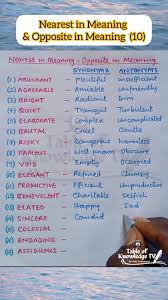 Nearest in Meaning
& Opposite in Meaning (10)
Nearest in Meaning - Opposite in Meaning
SYNONYMS ANTONYMS
(1) ABUNDANT - Plentiful Insufficient
(2) AGREEABLE - Amiable Unfriendly
(3) BRIGHT - Radiant Dim
(4) QUIET - Tranquil Disturbed
(5) ELABORATE - Complex Uncomplicated
(6) BRUTAL - Cruel Gentle
(7) RISKY - Dangerous Harmless
(8) FAMOUS - Well known Obscure
(9) VOID - Empty Occupied
(10) ELEGANT - Refined Clumsy
(11) PRODUCTIVE - Efficient Unproductive
(12) BENEVOLENT - Charitable Selfish
(13) ELATED - Happy Sad
(14) SINCERE - Candid
(15) COLOSSAL -
(16) ENGAGING -
(17) ASSIDUOUS -
Table of
Knowledge TV